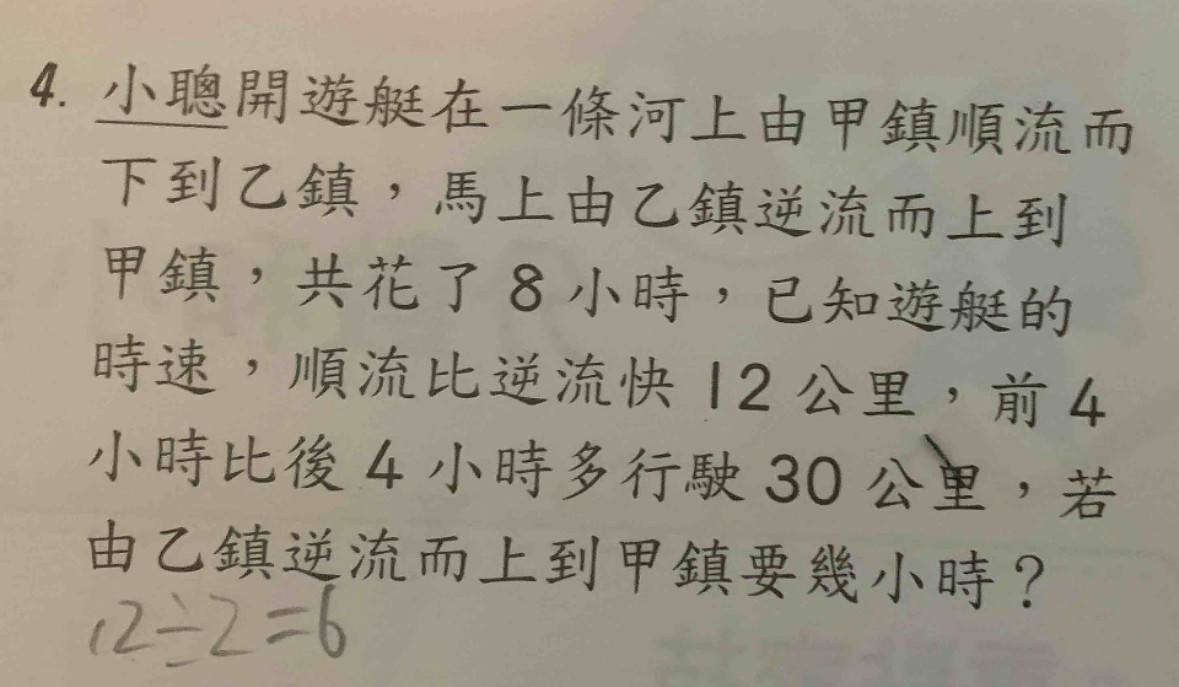 4. 小聰開遊艇在一條河上由甲鎮順流而
下到乙鎮，馬上由乙鎮逆流而上到
甲鎮，共花了8小時，已知遊艇的
時速，順流比逆流快12公里，前4
小時比後4小時多行駛30公里，若
由乙鎮逆流而上到甲鎮要幾小時？
12÷2=6